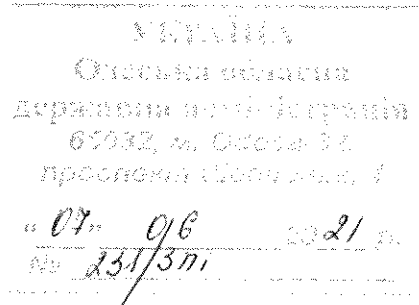 УКРАЇНА
Одеська обласна
державна адміністрація
65032, м. Одеса-32
проспект 4
"07" 06 2021 р.
№ 231/3пі